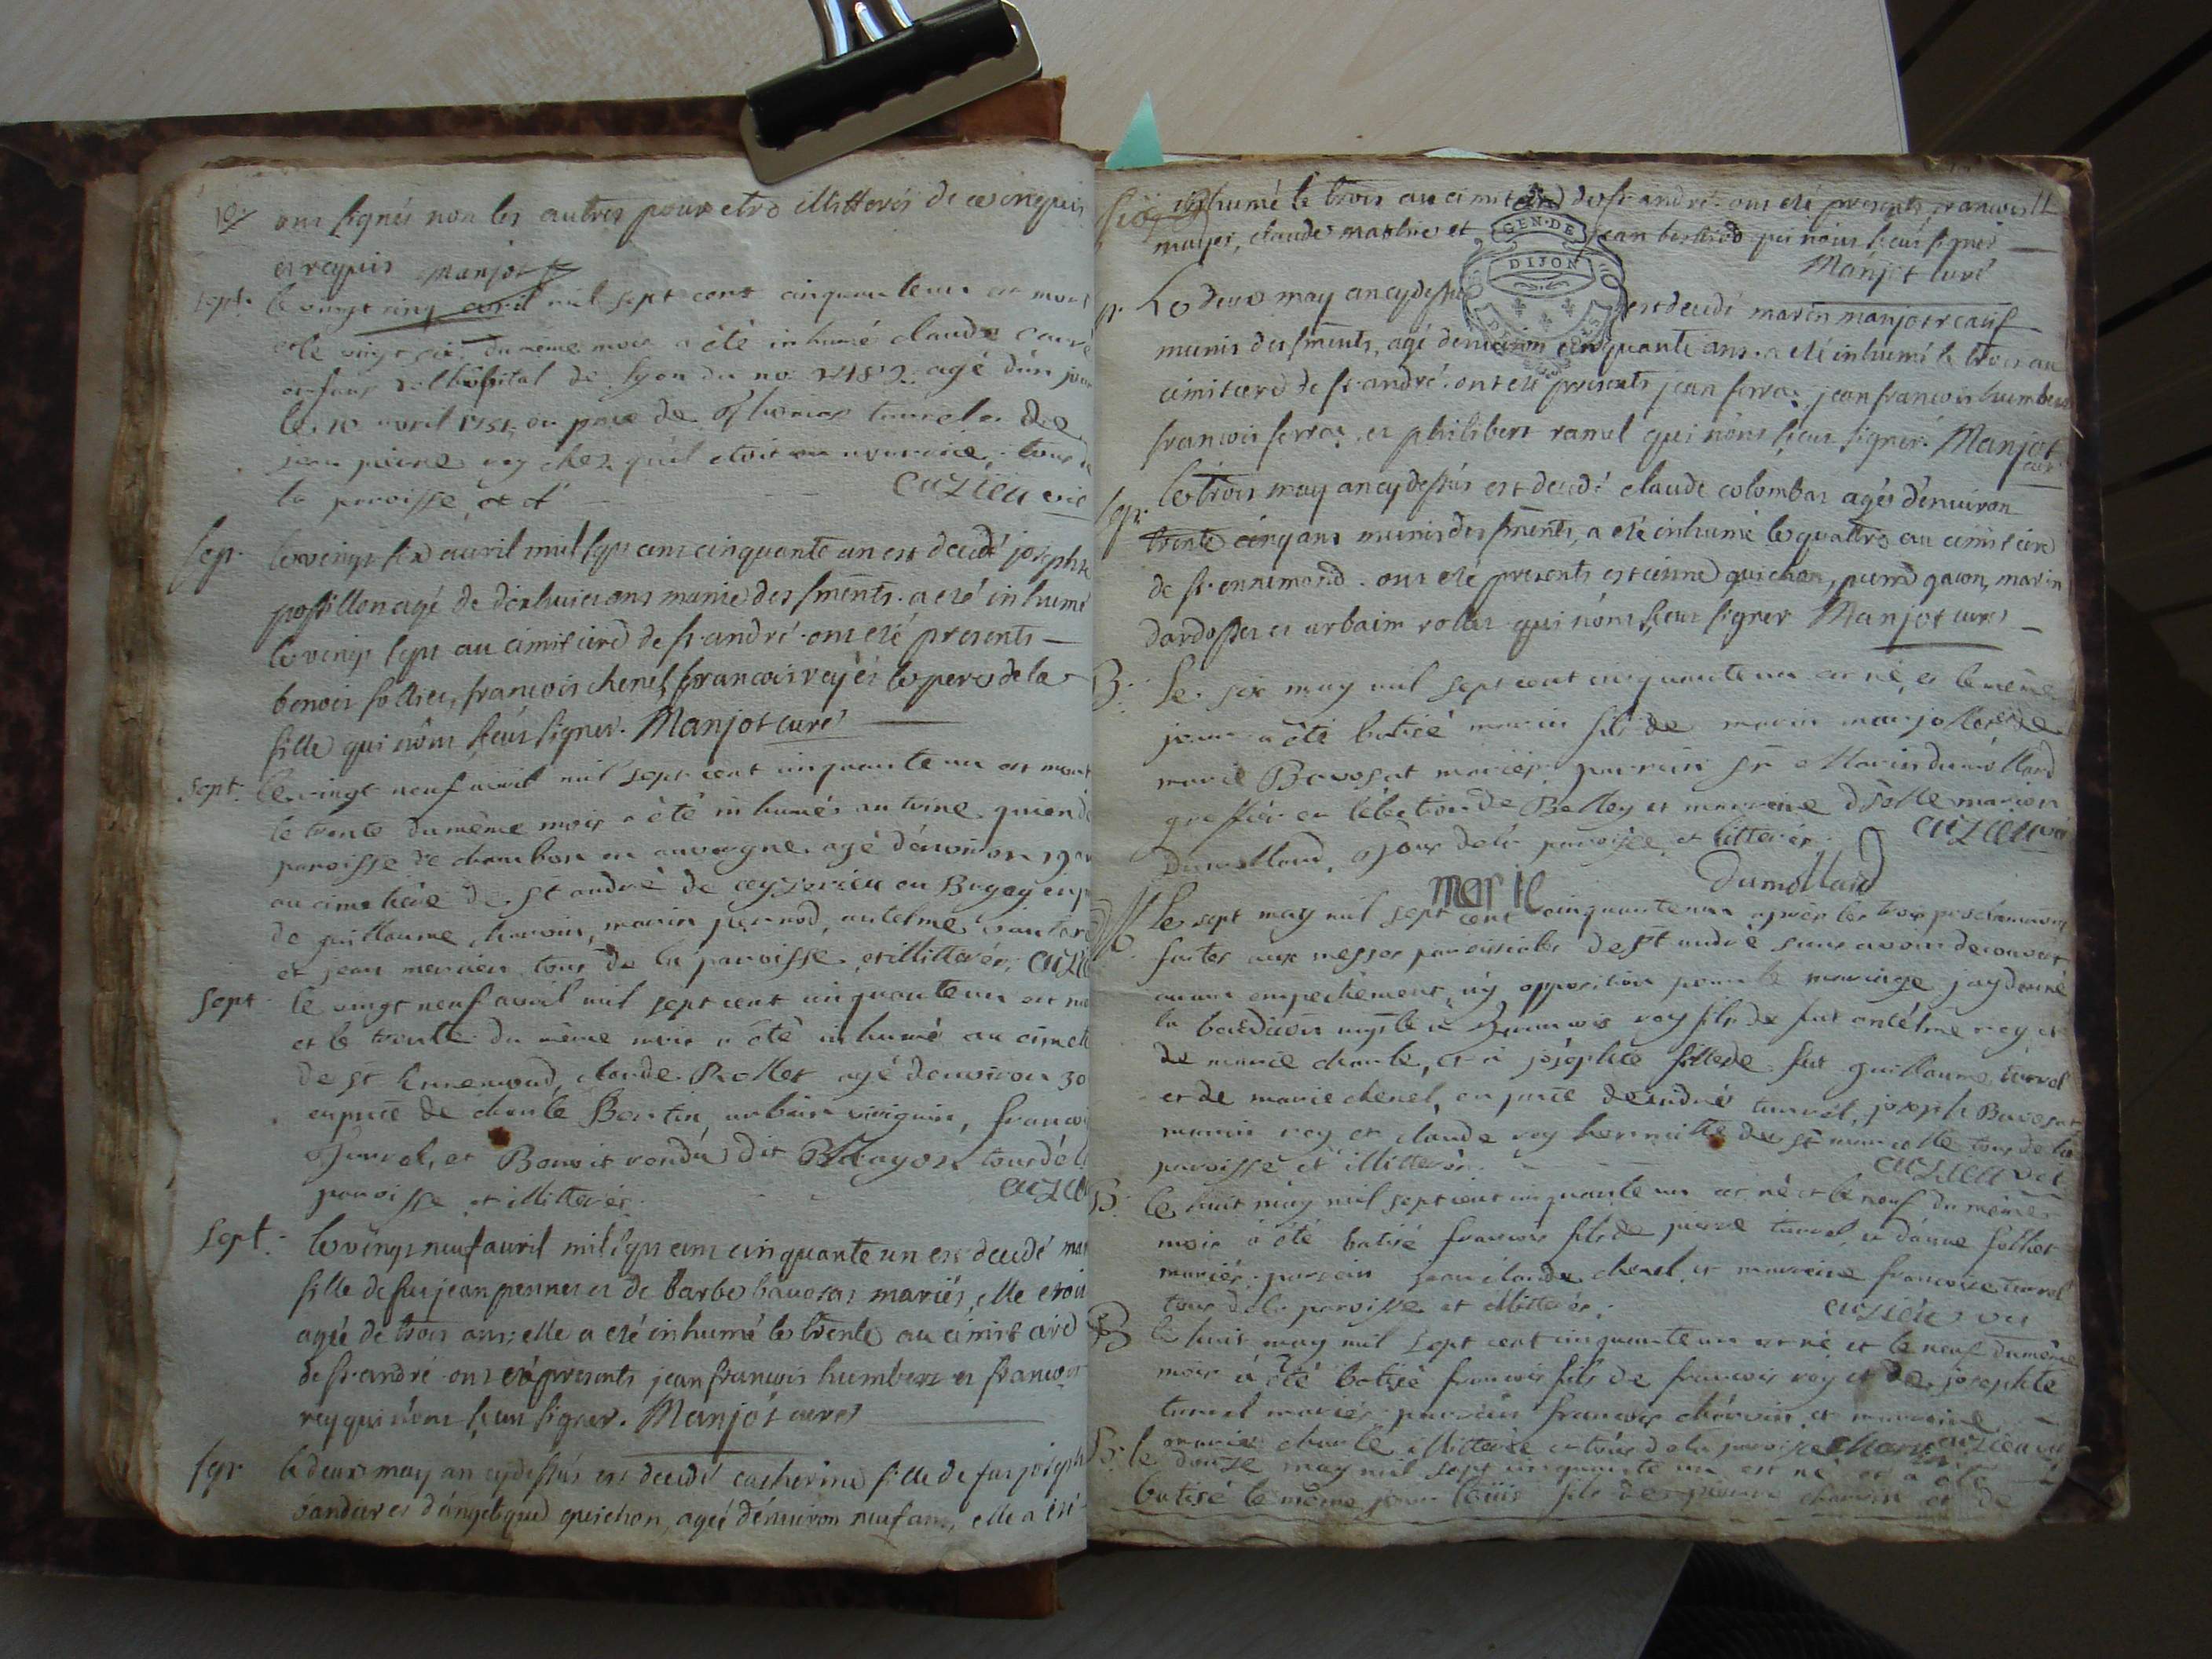 10
ont signés non les autres pour etre illitterés de ce enquis
et requis Manjot
sept. le vingt cinq avril mil sept cent cinquante un est mort
et le vingt six du meme mois a été inhumé claude
enfant de l'hôpital de lyon du no agé d'un jour
le 10 avril 1751, en pnce de thomas turrel de
jean pierre rey chez qu'il etoit en nourrice, tous de
la paroisse et Cuzieu vic
sep. le vingt six avril mil sept cens cinquante un est decedé josephte
possillon agé de dixhuict ans munie des sments. a eté inhumé
le vingt sept au cimitiere de st. andré. ont eté presents
benoit sollier, francois chenel, francois rey et le pere de la
fille qui n'ont sceus signer. Manjot curé
sept. le vingt neuf avril mil sept cent cinquante un est mort
le trente du même mois a été inhumé antoine
paroisse de chambon en auvergne agé d'environ 19 an
au cimetiere de st andré de ceyzerieu en Bugey en
de guillaume charvin, marin pernod, antelme
et jean mercier tous de la paroisse et illitterés, Cuzieu
sept. le vingt neuf avril mil sept cent cinquante un est mo
et le trente du même mois a été inhumé au cimet
de st Ennemond, claude Rollet agé d'environ 30
en pnce de charle Bertin, urbain viviguin, francoi
turrel, et Benoit rendu dit tous de la
paroisse et illitterés. Cuzieu
sept. le vingt neuf avril mil sept cens cinquante un est decedé mar
fille de fut jean pennet et de barbe bavosat mariés, elle etoit
agée de trois ans; elle a eté inhumé le trente au cimitiere
de st. andré. ont eté presents jean francois humbert et francois
rey qui n'ont sceus signer. Manjot curé
sept. le deux may an cydessus est decedé catherine fille de fut joseph
et d'angelique quichon, agée d'environ neuf ans, elle a eté
11
inhumé le trois au cimitiere de st. andré. ont eté presents francois
mayer, claude mathie et jean berthod qui n'ont sceus signer
Manjot curé
GEN. DE
DIJON
Le deux may an cydessus est decedé marin manjot
munis des sments, agé d'environ cinquante ans. a eté inhumé le trois au
cimitiere de st. andré. ont eté presents jean ferraz, jean francois humbert
francois ferraz, et philibert ramel qui n'ont sceus signer. Manjot
curé
sept. le trois may an cydessus est decedé claude colombat agé d'environ
trente cinq ans munis des sments, a eté inhumé le quattre au cimitiere
de st. ennemond. ont eté presents estienne quichon, pierre gacon, marin
dardosset et urbain rollet qui n'ont sceus signer Manjot curé
B. le six may mil sept cent cinquante un est né, et le même
jour a été batisé marin fils de marin manjot et de
marie Bavosat mariés, parrain sr Marin dumollard
greffier en l'élection de Belley et marraine dlle marion
Dumollard, tous de la paroisse, et litterés. Cuzieu vic
Dumollard
meric
M le sept may mil sept cent cinquante un après les trois proclamations
faites aux messes paroissiales de st andré sans avoir decouvert
aucun empechement, ny opposition pour le mariage j'ay donné
la bénédiction nuptiale à francois rey fils de fut antelme rey et
de marie charle, et a joséphte fille de fut guillaume turrel
et de marie chenel, en pnce de andré turrel, joseph Bavosat
marin rey et claude rey hermitte de st marcelle tous de la
paroisse et illitterés. Cuzieu vic
B. le huit may mil sept cent cinquante un est né et le neuf du même
mois a été batisé francois fils de pierre turrel, et d'anne sollier
mariés. parrain jean claude chenel, et marraine francoise turrel
tous de la paroisse et illitterés. Cuzieu vic
B le huit may mil sept cent cinquante un est né et le neuf du même
mois a été batisé francois fils de francois rey et de josephte
turrel mariés, parrain francois chârvin et marraine
marie charle illitterés et tous de la paroisse Cuzieu vic
B. le douze may mil sept cinquante un est né et a été
batisé le même jour loüis fils de pierre charvin et de